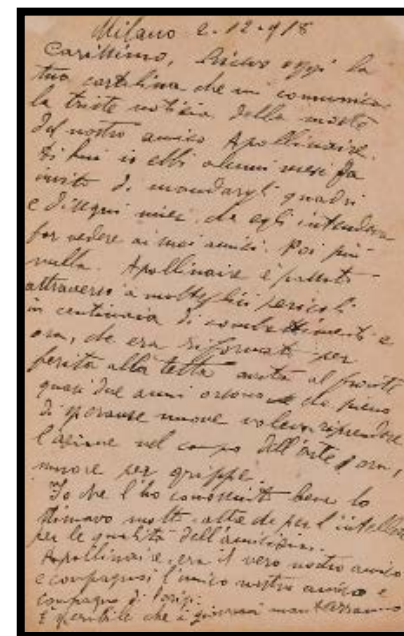 Milano 2-12-918
Carissimo, Ricevo oggi la
tua cartolina che mi comunica
la triste notizia della morte
del nostro amico Apollinaire.
Di lui io ebbi alcuni mesi fa
invito di mandargli quadri
e disegni miei che egli intendeva
far vedere ai suoi amici. Poi più
nulla. Apollinaire è passato
attraverso a molteplici pericoli
in centinaia di combattimenti e
ora, che era riformato per
ferita alla testa avuta al fronte
quasi due anni or sono e che pieno
di speranze nuove voleva riprendere
l'azione nel campo dell'arte, ora,
muore per grippe.
Io che l'ho conosciuto bene lo
stimavo molto oltre che per l'intelletto
per le qualità dell'amicizia.
Apollinaire, era il vero nostro amico
e compagno l'unico nostro amico e
compagno di Parigi.
È terribile che i giornali non